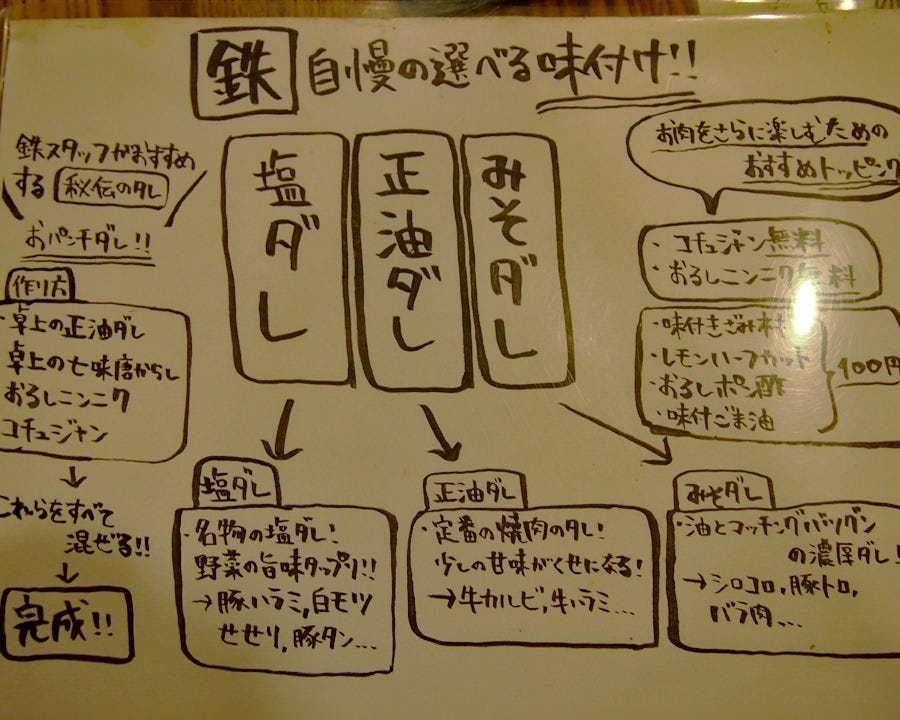 鉄 自慢の選べる味付け!!
鉄スタッフがおすすめ
する 秘伝のタレ
おパンチダレ!!
作り方
・卓上の正油ダレ
卓上の七味唐からし
おろしニンニク
コチュジャン
これらをすべて
混ぜる!!
完成!!
塩ダレ
正油ダレ
みそダレ
お肉をさらに楽しむための
おすすめトッピング
・コチュジャン無料
・おろしニンニク無料
・味付きざみ
・レモンハーフカット
・おろしポン酢
・味付ごま油
100円
塩ダレ
・名物の塩ダレ!
野菜の旨味タップリ!!
→豚ハラミ,白モツ
せせり,豚タン...
正油ダレ
・定番の焼肉のタレ!
少しの甘味がくせになる!
→牛カルビ,牛ハラミ...
みそダレ
・油とマッチングバツグン
の濃厚ダレ!
→シロコロ,豚トロ,
バラ肉...